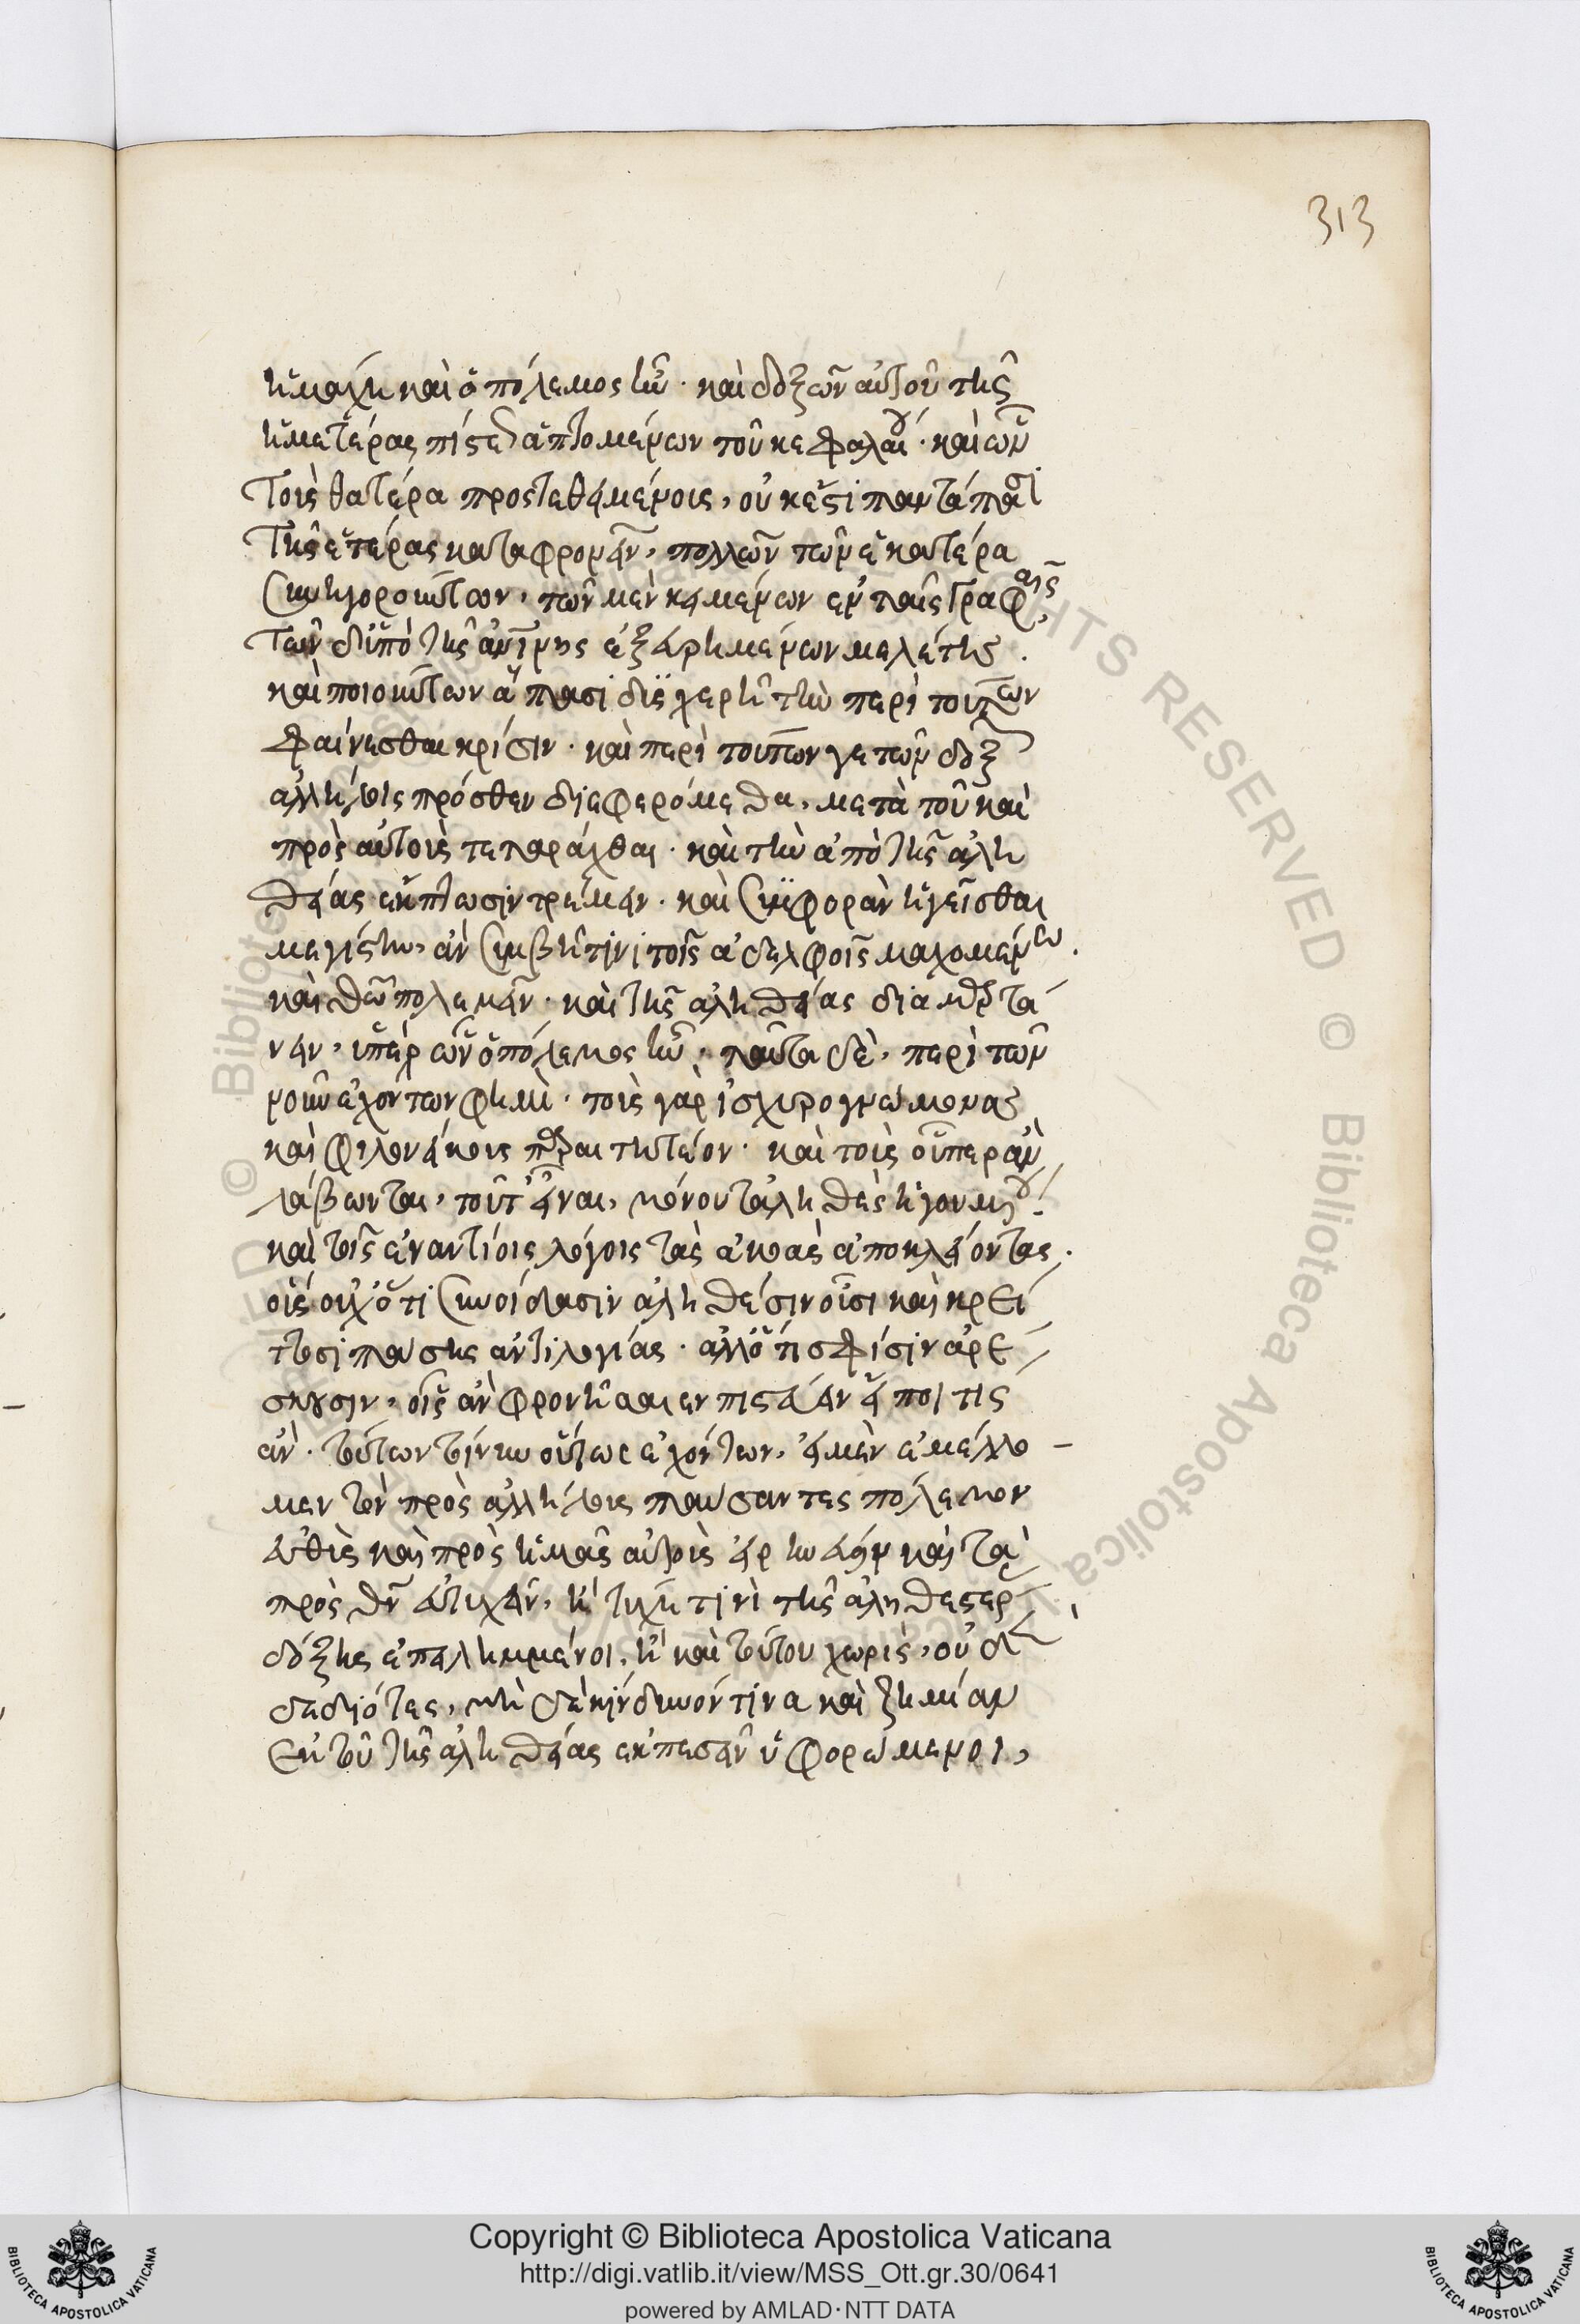 313
ἡ μάχη καὶ ὁ πόλεμος ἦν. καὶ δοξῶν αὐτοῦ τῆς
ἡμετέρας πίστεως ἁπτομένων τοῦ κεφαλαίου. καὶ
τοὺς θατέρα προστεθειμένους, οὐκ ἔστι παντάπασι
τῆς ἑτέρας καταφρονεῖν, πολλῶν τῶν ἑκατέρα
συνηγορούντων, τῶν μὲν κειμένων ἐν ταῖς γραφαῖς,
τῶν δ' ὑπὸ τῆς ἐκείνης ἐξευρημένων μελέτης.
καὶ ποιούντων ἅπασι δυσχερῆ τὴν περὶ τούτων
φαίνεσθαι κρίσιν. καὶ περὶ τούτων γε τῶν δοξῶν
ἀλλήλοις πρόσθεν διεφερόμεθα, μετὰ τοῦ καὶ
πρὸς αὑτοὺς τεταράχθαι. καὶ τὴν ἀπὸ τῆς ἀλη
θείας ἔκπτωσιν τρέμειν. καὶ συμφορὰν ἡγεῖσθαι
μεγίστην, ἂν συμβῇ τινι τοῖς ἀδελφοῖς μαχομένῳ.
καὶ θεῷ πολεμεῖν. καὶ τῆς ἀληθείας διαμαρτά
νειν, ὑπὲρ ὧν ὁ πόλεμος ἦν. ταῦτα δὲ, περὶ τῶν
νοῦν ἐχόντων φημὶ. τοὺς γὰρ ἰσχυρογνώμονας
καὶ φιλονείκους παραιτητέον. καὶ τοὺς οὗπερ ἂν
λάβωνται, τοῦτ' εἶναι, μόνον τἀληθὲς ἡγουμένους.
καὶ τοῖς ἐναντίοις λόγοις τὰς ἀκοὰς ἀποκλείοντας.
οἷς οὐχ ὅτι συνοίδασιν ἀληθέσιν οὖσι καὶ κρεί
τοσι πάσης ἀντιλογίας. ἀλλ' ὅτι σφίσιν ἀρέ
σκουσιν, οἷς ἂν φρονῆσαι ἐν πίστει ἂν εἴποι τις
ἄν. τούτων τοίνυν οὕτως ἐχόντων, εἰ μὲν ἐμέλλο
μεν τὸν πρὸς ἀλλήλους παύσαντες πόλεμον
εὐθὺς καὶ πρὸς ἡμᾶς αὐτοὺς εἰρήνην καὶ τὰ
πρὸς θεὸν εὐτυχεῖν, ἢ τύχῃ τινὶ τῆς ἀληθεστέρας
δόξης ἐπειλημμένοι, ἢ καὶ τούτου χωρὶς, οὐ
δεδιότες, μὴ δὲ κίνδυνόν τινα καὶ ζημίαν
ἐκ τοῦ τῆς ἀληθείας ἐκπεσεῖν ὑφορώμενοι,
Copyright © Biblioteca Apostolica Vaticana
http://digi.vatlib.it/view/MSS_Ott.gr.30/0641
powered by AMLAD·NTT DATA